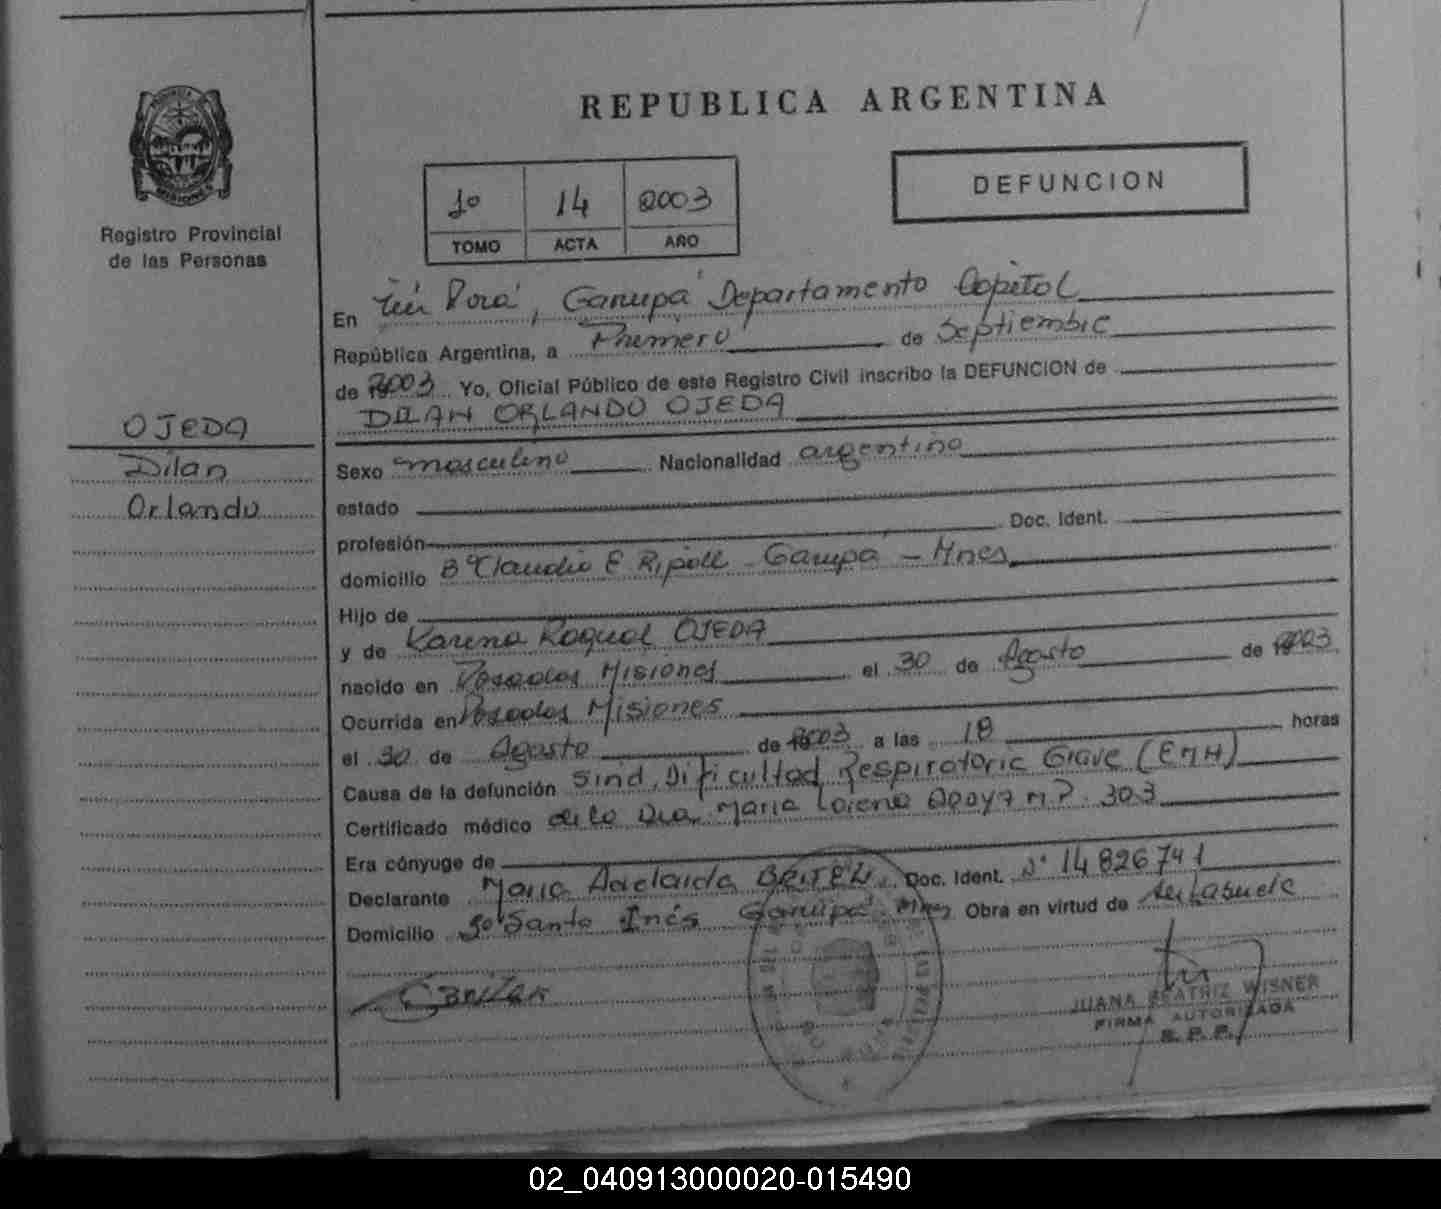 REPUBLICA ARGENTINA
DEFUNCION
1º 14 2003
TOMO ACTA AÑO
Registro Provincial
de las Personas
OJEDA
Dilan
Orlando
En Garupá Departamento Capital
República Argentina, a Primero de Septiembre
de 2003 Yo, Oficial Público de este Registro Civil inscribo la DEFUNCION de
DILAN ORLANDO OJEDA
Sexo masculino Nacionalidad argentino
estado
profesión Doc. Ident.
domicilio Bº Claudio E Ripoll - Garupá - Mnes
Hijo de
y de Karina Raquel OJEDA
nacido en Posadas Misiones el 30 de Agosto de 2003
Ocurrida en Posadas Misiones
el 30 de Agosto de 2003 a las 18 horas
Causa de la defunción Sind. Dificultad Respiratoria Grave (EMH)
Certificado médico de la Dra. Maria Lorena M.P. 303
Era cónyuge de
Declarante Maria Adelaida Doc. Ident. Nº 14826741
Domicilio Santa Inés Garupá Mnes Obra en virtud de
JUANA BEATRIZ WISNER
FIRMA AUTORIZADA
R. P. P.
02_040913000020-015490